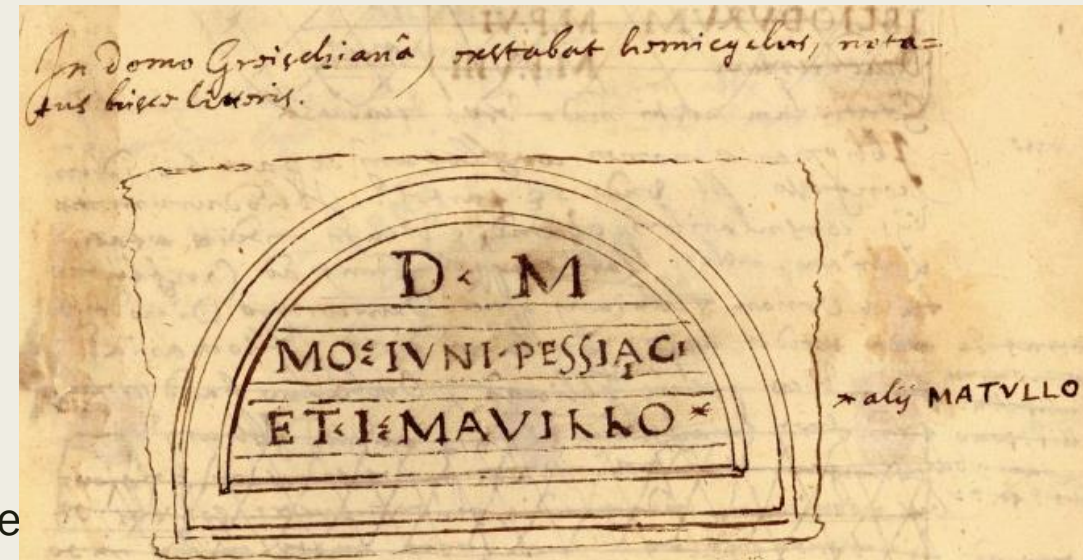 In domo Greischianâ, exstabat hemicyclus, nota=
tus hisce litteris.
D‹ M
MO⁝IVNI·PESSIACI
ET‹I⁝MAVILLO *
* alij MATVLLO
e